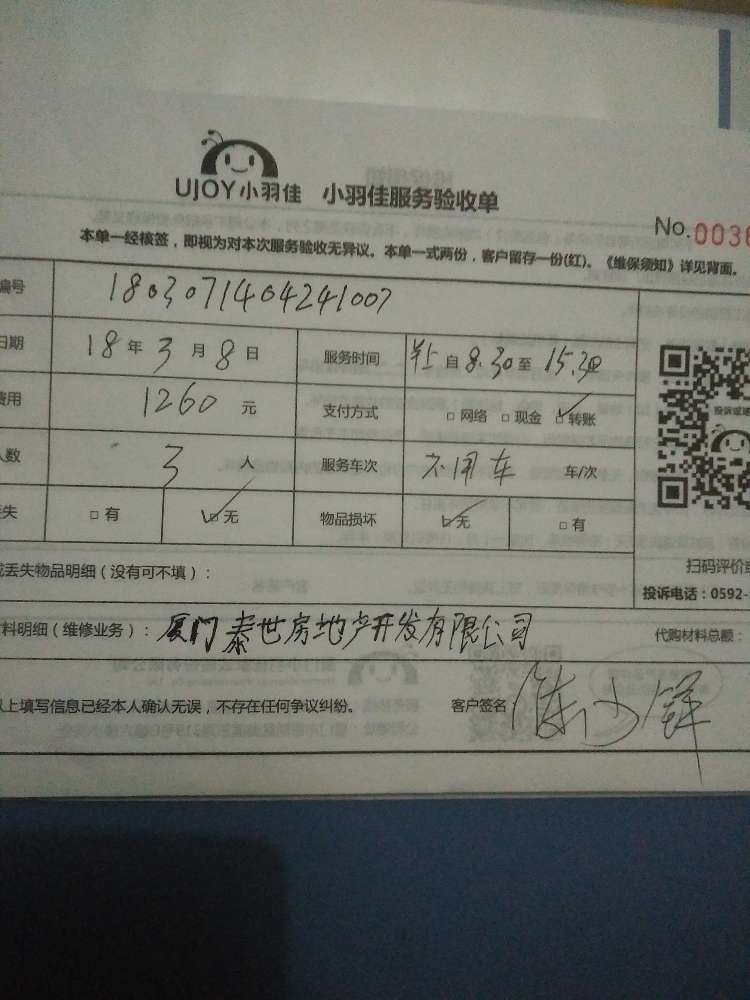 UJOY小羽佳 小羽佳服务验收单
No.0036
本单一经核签，即视为对本次服务验收无异议。本单一式两份，客户留存一份(红)。《维保须知》详见背面。
编号 1803071404241007
日期 18年3月8日 服务时间 自8.30至15.30
费用 1260元 支付方式 □网络 □现金 ☑转账
人数 3人 服务车次 不用车 车/次
失 □有 ☑无 物品损坏 ☑无 □有
扫码评价
丢失物品明细（没有可不填）：
投诉电话：0592-
料明细（维修业务）：厦门泰世房地产开发有限公司 代购材料总额：
上填写信息已经本人确认无误，不存在任何争议纠纷。 客户签名